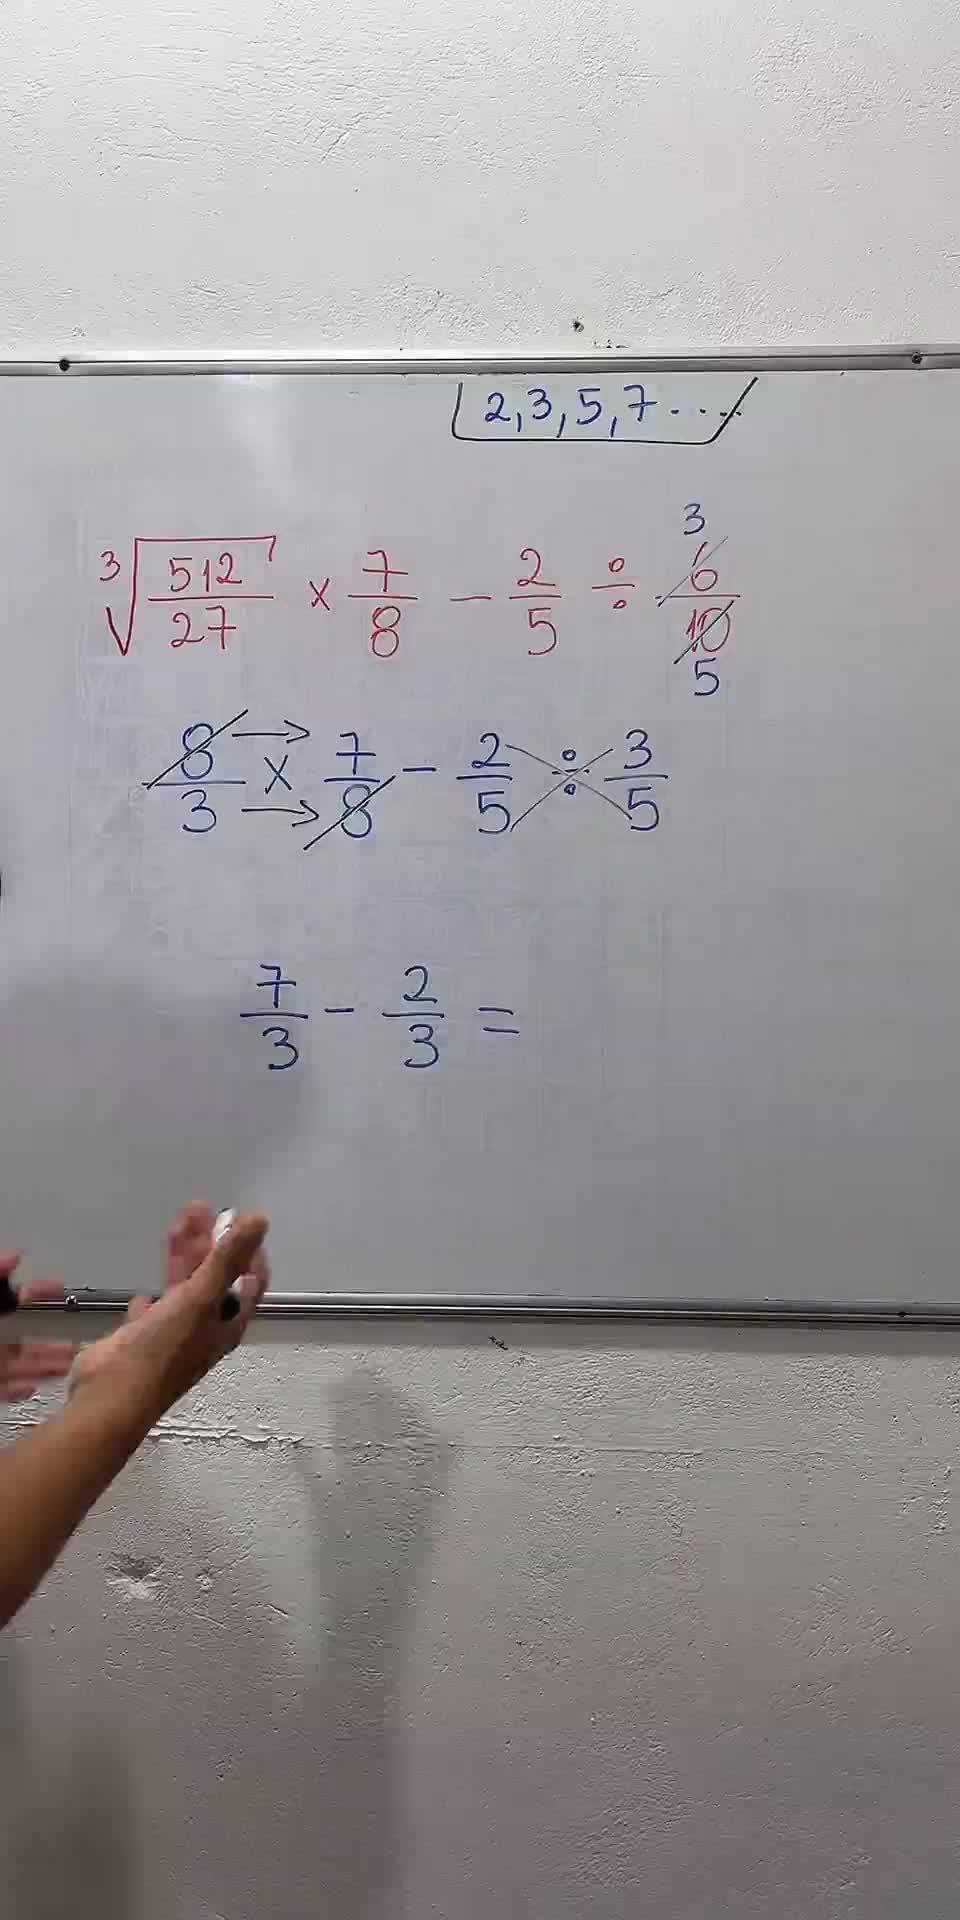 2, 3, 5, 7 ....
3
∛(512/27) × 7/8 − 2/5 ÷ 6/10
5
8/3 × 7/8 − 2/5 ÷ 3/5
7/3 − 2/3 =